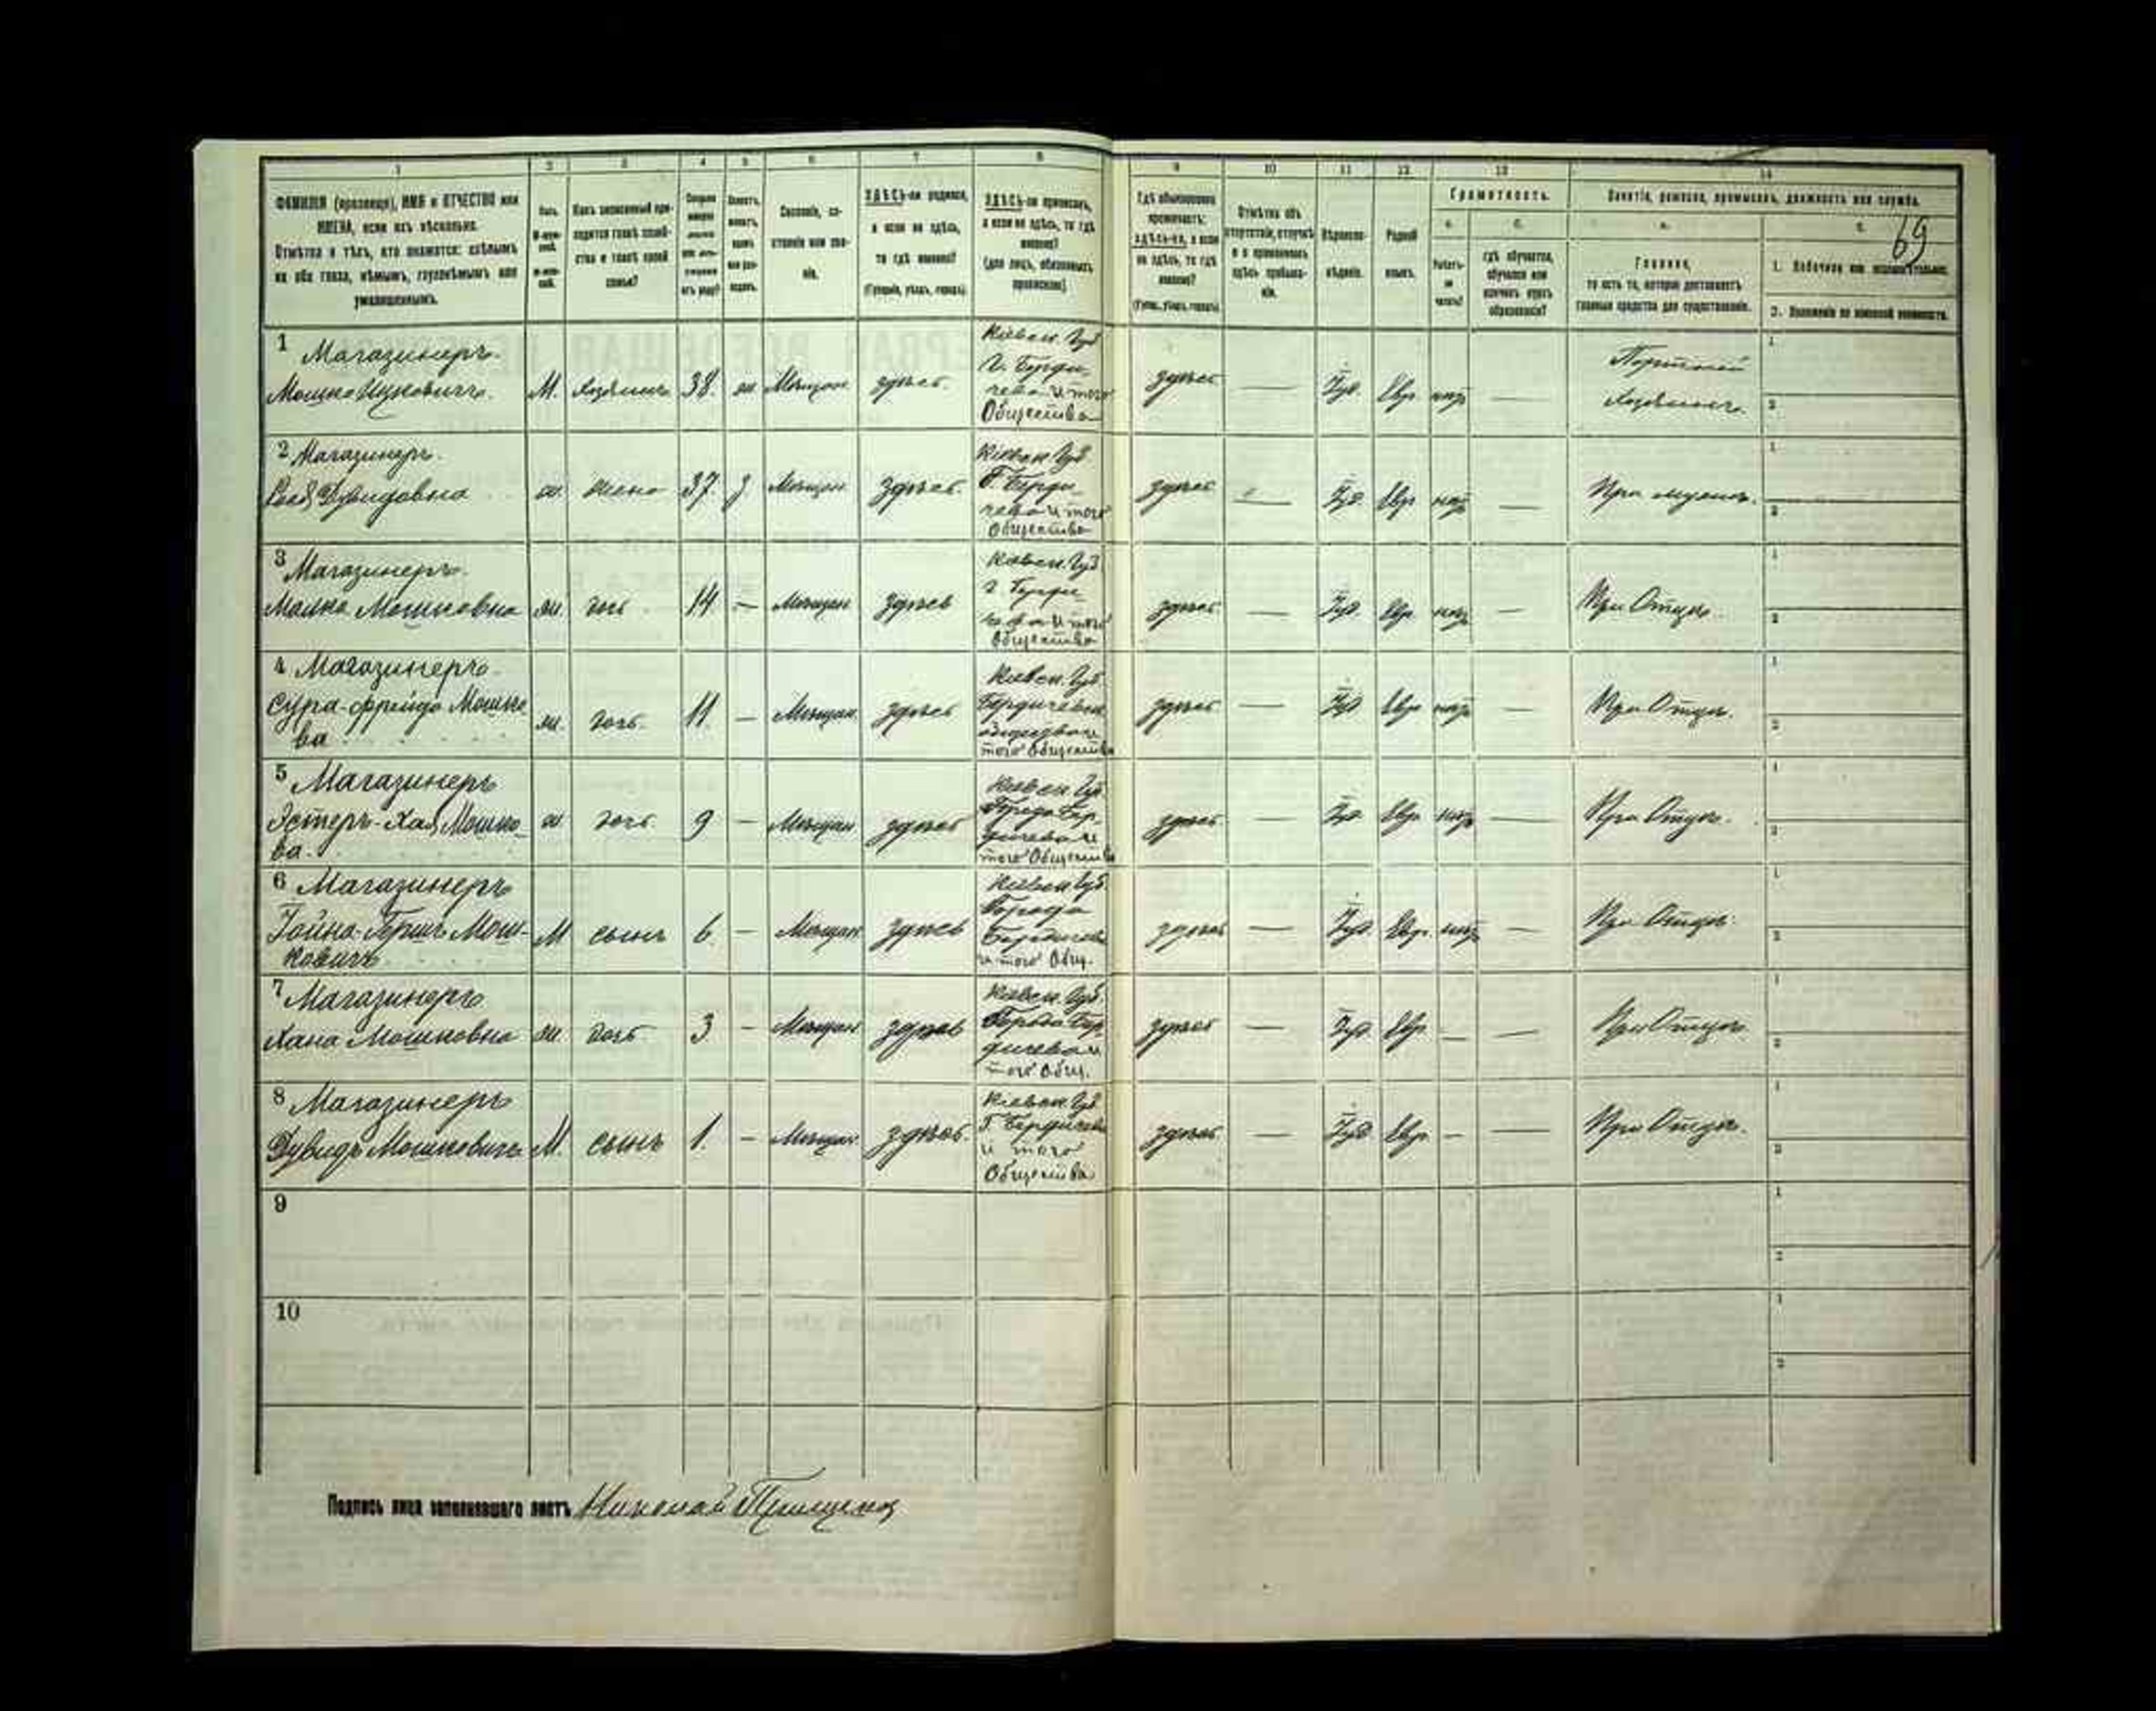 1 2 3 4 5 6 7 8
ФАМИЛІЯ (прозвище), ИМЯ и ОТЧЕСТВО или
ИМЕНА, если ихъ нѣсколько.
Отмѣтка о тѣхъ, кто окажется: слѣпымъ
на оба глаза, нѣмымъ, глухонѣмымъ или
умалишеннымъ.
Полъ.
Какъ записанный при-
ходится главѣ хозяй-
ства и главѣ своей
семьи?
Сословіе, со-
стояніе или зва-
ніе.
ЗДѢСЬ-ли родился,
а если не здѣсь,
то гдѣ именно?
(Губернія, уѣздъ, городъ).
ЗДѢСЬ-ли приписанъ,
а если не здѣсь, то гдѣ
именно?
(для лицъ, обязанныхъ
припискою)
9 10 11 12 13 14
Гдѣ обыкновенно
проживаетъ:
здѣсь-ли, а если
не здѣсь, то гдѣ
именно?
(Губер., уѣздъ, городъ)
Отмѣтка объ
отсутствіи, отлучкѣ
и о временномъ
здѣсь пребыва-
ніи.
Вѣроиспо-
вѣданіе.
Родной
языкъ.
Грамотность.
а. б.
Умѣетъ-
ли
читать?
гдѣ обучается,
обучался или
кончилъ курсъ
образованія?
Занятіе, ремесло, промыселъ, должность или служба.
а. б.
69
Главное,
то есть то, которое доставляетъ
главныя средства для существованія.
1. Побочное или вспомогательное.
2. Положеніе по воинской повинности.
1 Магазинеръ
Мошко Ицковичъ. М. хозяинъ 38. ж Мѣщан. здѣсь
Кіевск. Губ
г. Берди-
чева и того
Общества
здѣсь — Іуд. Евр. нѣтъ —
Портной
хозяинъ
1
2
2 Магазинеръ
Дувидовна ж. жена 37 з Мѣщан. здѣсь
Кіевск. Губ
Г. Берди-
чева и того
Общества
здѣсь — Іуд. Евр нѣтъ — При мужѣ.
1
2
3 Магазинеръ
Малка Мошковна ж. дочь 14 — Мѣщан здѣсь
Кіевск. Губ
г. Берди
чева и того
Общества
здѣсь — Іуд. Евр. нѣтъ — При Отцѣ.
1
2
4 Магазинеръ
Сура-Фрейда Мошко
ва ж. дочь 11 — Мѣщан. здѣсь
Кіевск. Губ.
того Общества
здѣсь — Іуд Евр нѣтъ — При Отцѣ.
1
2
5 Магазинеръ
Эстеръ-Хая Мошко-
ва. ж дочь 9 — Мѣщан здѣсь
Кіевск. Губ
Города Бер-
дичева и
того Общества
здѣсь — Іуд. Евр. нѣтъ — При Отцѣ.
1
2
6 Магазинеръ
Іойна-Гершъ Мош-
ковичъ М сынъ 6 — Мѣщан здѣсь
Кіевск Губ.
Города
Бердичева
и того Общ.
здѣсь — Іуд. Евр. нѣтъ — При Отцѣ.
1
2
7 Магазинеръ
Хана Мошковна ж. дочь 3 — Мѣщан здѣсь
Кіевск. Губ.
Города Бер
дичева и
того Общ.
здѣсь — Іуд. Евр. — — При Отцѣ.
1
2
8 Магазинеръ
Дувидъ Мошковичъ М. сынъ 1. — Мѣщан. здѣсь.
Кіевск. Губ
Г. Бердичева
и того
Общества
здѣсь — Іуд. Евр. — — При Отцѣ.
1
2
9
1
2
10
1
2
Подпись лица заполнявшаго листъ Николай